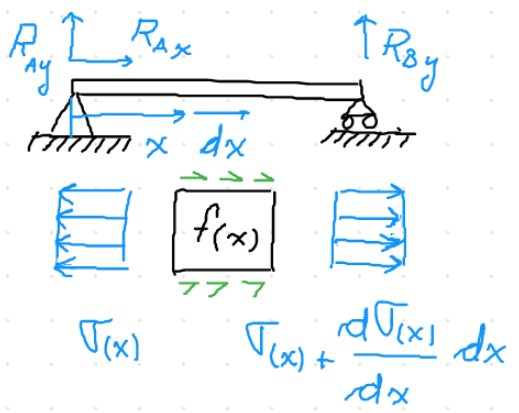 R_Ay R_Ax R_By
x dx
f(x)
σ(x) σ(x) + dσ(x)/dx dx